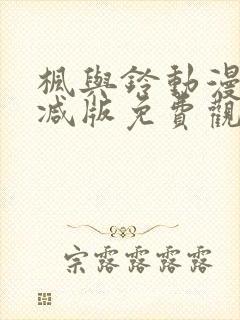 楓與鈴動漫
減版免費觀
宗露露露露